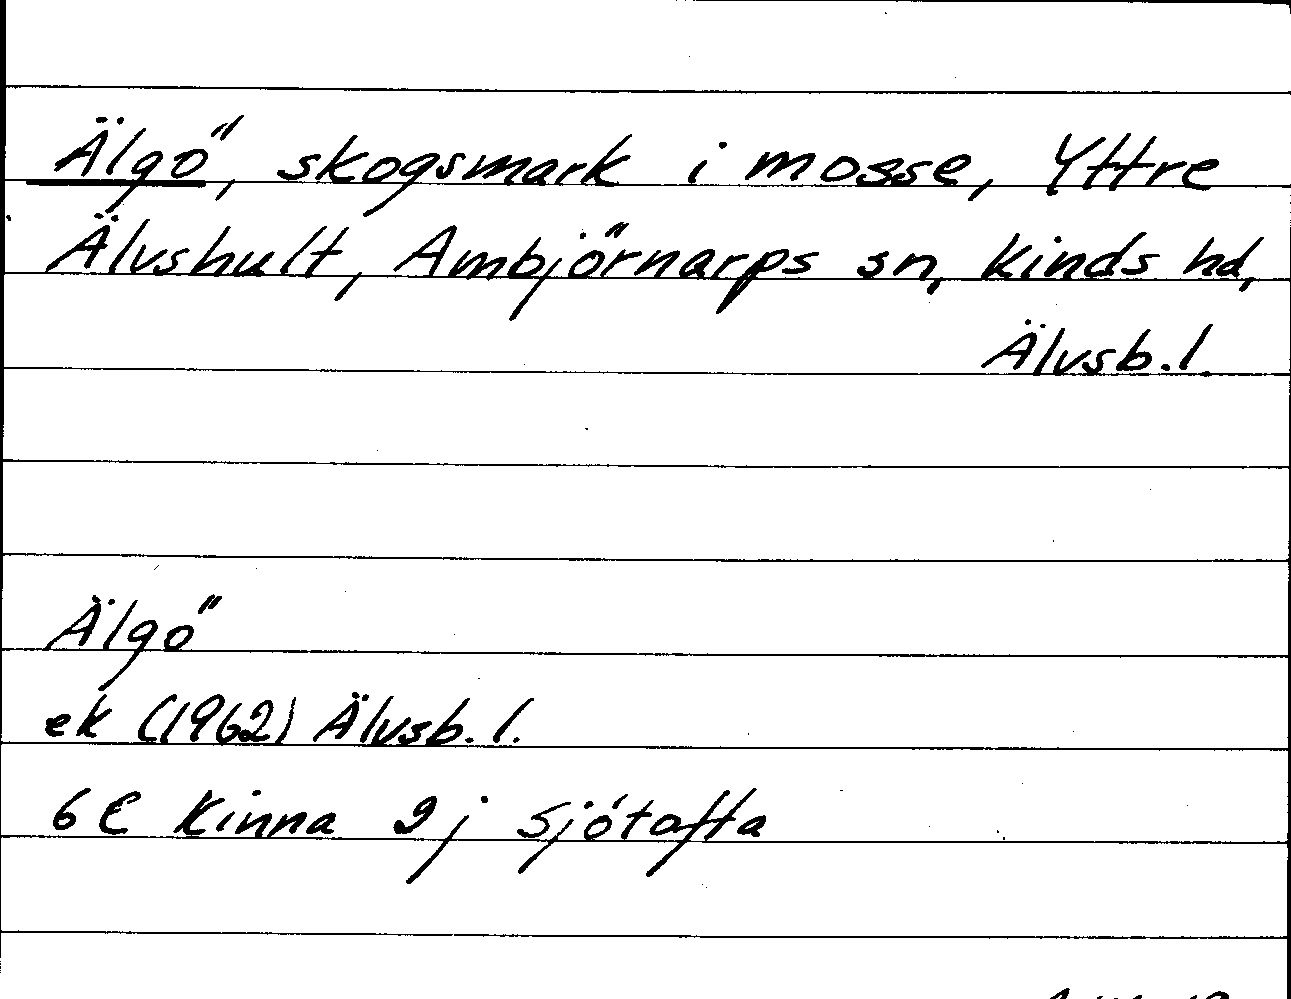 Älgö, skogsmark i mosse, Yttre
Älvshult, Ambjörnarps sn, Kinds hd,
Älvsb.l.
Älgö
ek (1962) Älvsb.l.
6C Kinna 9j Sjötofta